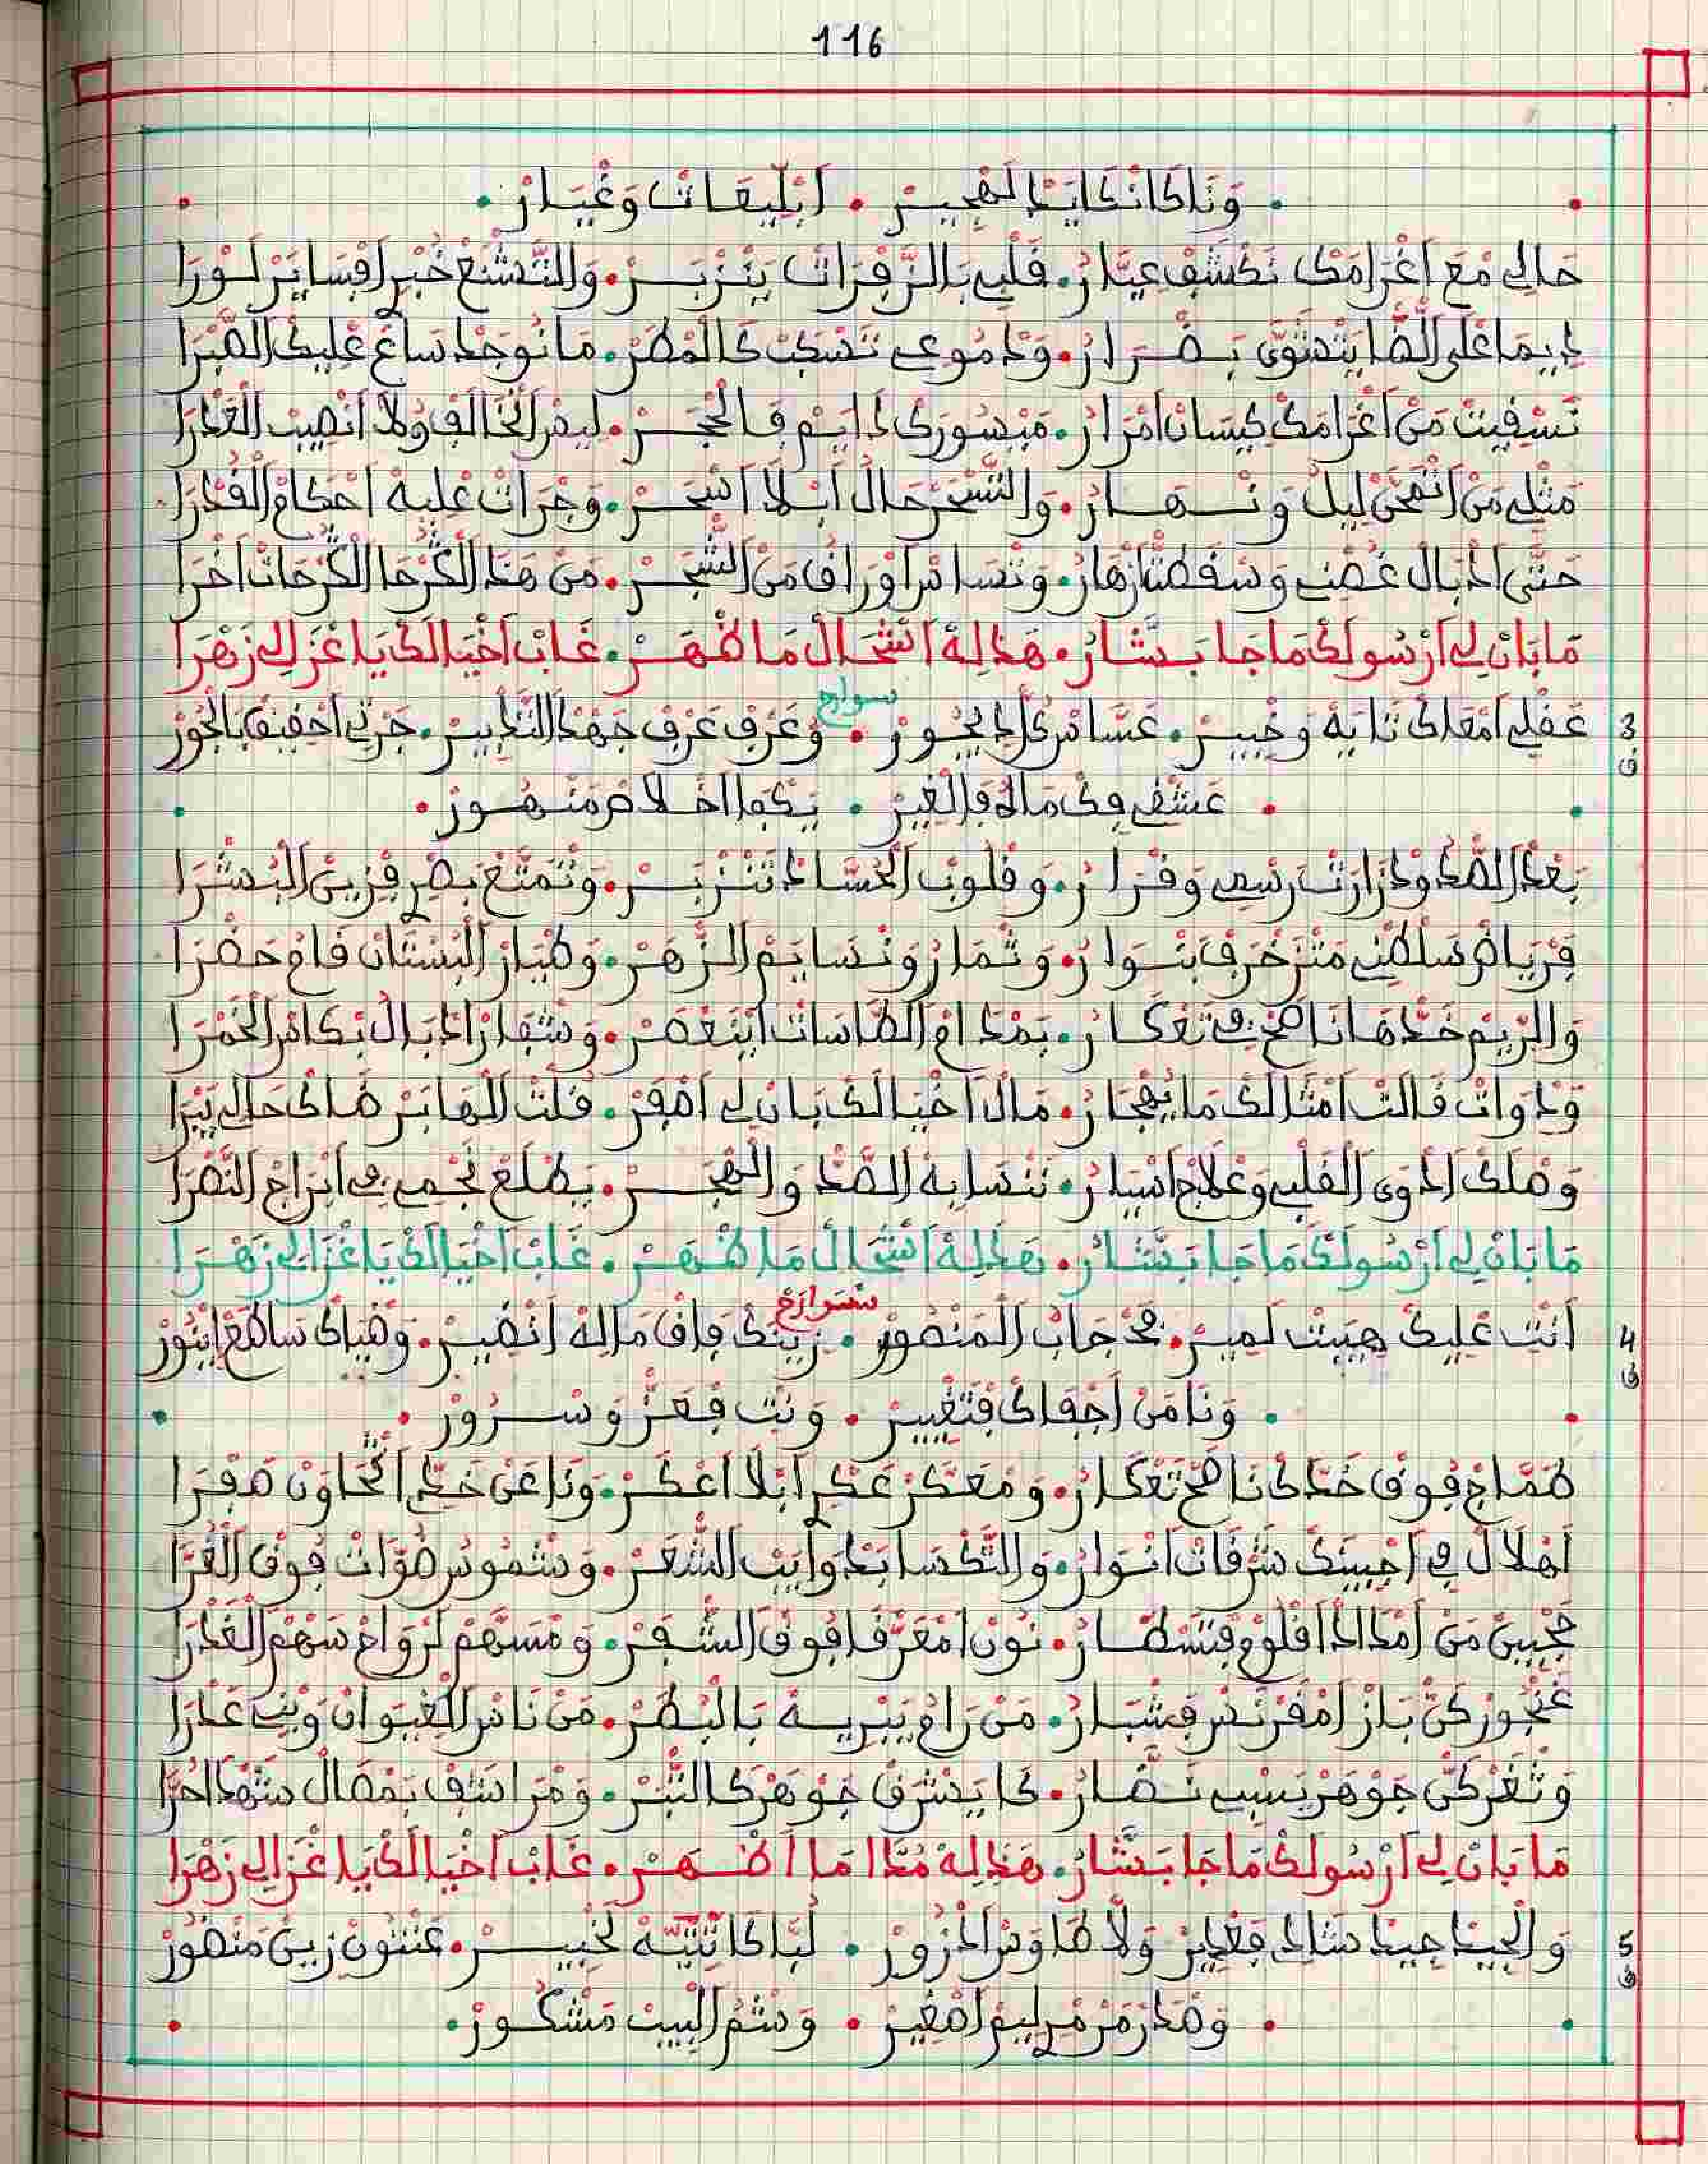 116
وَنَا كَانْكَايَدْ الَهْجِيرْ • اَبْلِيعَاتْ وَغْيَارْ
حَالِي مْعَ اغْرَامَكْ نَكْشَفْ عِيَّارُ • قَلْبِي بَالزَّفْرَاتْ يَنْزْبَرْ • وَالتَّشْنَعْ خْبَرِ افْسَايَرْ لَوْرَا
دِيمَا عْلَى الضَّا يَتْشَوَّى بَضْرَارُ • وَدْمُوعِي تَسْكَبْ كَالْمْطَرْ • مَا نُوجَدْ سَاعَ عْلِيكْ الصَّبْرَا
تَسْقِيتْ مَنْ اغْرَامَكْ كِيسَانْ امْرَارُ • مَيْسُورَكْ دَايَمْ فَالْحْجَرْ • وَلاَ انْصِيبْ الْغَدْرَا
مَثْلِي مَنْ انْمْحَنْ لِيلُ وَنْهَارُ • وَالتَّسْحَرْ حَالُ ابْلاَ اسْحَرْ • وَجْرَاتْ عْلِيهْ احْكَامْ الْقُدْرَا
حَتَّى ادْبَالْ غُصْنِي وَسَقْطَتْ ازْهَارُ • وَنْسَاسْ اوْرَاقُ مَنْ الشّجَرْ • مَنْ هَذَا الْكَرْحَا الْكَرْحَاتْ اخْرَا
مَا بَانْ لِي ارْسُولَكْ مَا جَا بَشَّارُ • هَذَا لِهْ اشْحَالْ مَا ظْهَرْ • غَابْ اخْيَالَكْ يَا غْزَالِي زَهْرَا
3
ق
سوارح
عَقْلِي امْعَاكْ تَايَهْ وَخْبِيرْ • عَسَّاسْ كَادِيجُورْ • وَعْرَفْ عَرْفْ جَهْدْ التَّدْبِيرْ • جَرْنِي احْقِيقَ بَالْجُورْ
عَشْقِي فِيكْ مَالُه فَالْغِيرْ • يَكْفَا اخْلاَصْ مَنْهُورْ
بَعْدْ الصَّدْ وْدْ زَارَتْ رَسْمِي وَقْرَارُ • وَقْلُوبْ الْحُسَّادْ تَنْزْبَرْ • وَنْمَتَّعْ بَصْرِي فْزِينْ الْبُشْرَا
فَرْيَاضْ سَلْطْنِي مَتْزَخْرَفْ بَنْوَارُ • وَثْمَارُ وَنْسَايَمْ الزّهَرْ • وَطْيَارْ الْبُسْتَانْ فَاحْ حَضْرَا
وَالرِّيمْ خَدّهَا نَاصَحْ فِي تَعْكَارُ • بَمْدَامْ الطَّاسَاتْ ايَنْعْصَرْ • وَشْفَارْ ادْبَالْ بَكَاسْ الْخَمْرَا
وَدْوَاتْ قَالَتْ امْثَالَكْ مَا يُهْجَارُ • مَالْ اخْيَالَكْ بَانْ لِي اصْفَرْ • قُلْتْ الْهَا حَالِي يَبْرَا
وَصْلَكْ ادْوَى الْقَلْبِي وَعْلاَجْ اسْيَارُ • نَنْسَا بِهْ الصَّدْ وَالْهْجَرْ • يَطْلَعْ نَجْمِي فِي ابْرَاجْ النَّصْرَا
مَا بَانْ لِي ارْسُولَكْ مَا جَا بَشَّارُ • هَذَا لِهْ اشْحَالْ مَا ظْهَرْ • غَابْ اخْيَالَكْ يَا غْزَالِي زَهْرَا
4
ق
سوارح
اَنْتِ عْلِيكْ هِيبْتْ لَمِيرْ • حْجَابْ الْمَنْصُورْ • زِينَكْ فَاقْ مَالِهْ انْضِيرْ • وَضْيَاكْ سَاطَعْ ايْنُورْ
وَنَا مَنْ اجْفَاكْ فَتْغْيِيرْ • وَنْتِ فْعَزْ وَسْرُورْ
طَمَّاحْ فُوقْ خَدَّكْ نَاصَحْ تَعْكَارُ • وَمْعَكَّرْ عَكْرِ ابْلاَ اعْكَرْ • وَنَا عَنْ خَدِّي صَفْرَا
اَهْلاَلْ فِي اجْبِينَكْ شَرْقَاتْ انْوَارُ • وَالتَّكْسَا بَدْوَايَبْ الشّعَرْ • وَشْمُوسْ ضَوَّاتْ فُوقْ الْغُرَّا
حَجْبِينْ مَنْ امْدَادْ اقْلُومْ فَتْسْطَارُ • نُونْ امْعَرَّقَا فُوقْ الشّفَرْ • وَمْسَهَّمْ لَرْوَاحْ سَهْمْ الْغَدْرَا
غَنْجُورْ كَنْ بَازْ امْقَرْنَصْ فَشْبَارُ • مَنْ رَاهْ يَتِيهْ بَالْبْصَرْ • مَنْ نَاسْ الْغِيوَانْ وَبْنِي عَدْرَا
وَثْغَرْ كَنْ جَوْهَرْ يَسْبِي نَظَّارُ • كَا يَشْرَقْ جَوْهَرْ كَالثّبَرْ • وَمْرَاشَفْ بَمْصَالْ شَهْدَا حُرَّا
مَا بَانْ لِي ارْسُولَكْ مَا جَا بَشَّارُ • هَذَا لِهْ مُدَّا مَا اظْهَرْ • غَابْ اخْيَالَكْ يَا غْزَالِي زَهْرَا
5
ق
وَالْجِيدْ جِيدْ شَادِي فَغْدِيرْ وَلاَّ طَاوَسْ الْدْرُورْ • لَبَّا كَاتْتِيّهْ لَخْبِيرْ • عَنْتُونْ زِينْ مَنْضُورْ
وَصْدَرْ مَرْمْرِي لِيمْ اصْغِيرْ • وَشْمُ الْبِيتْ مَشْكُورْ